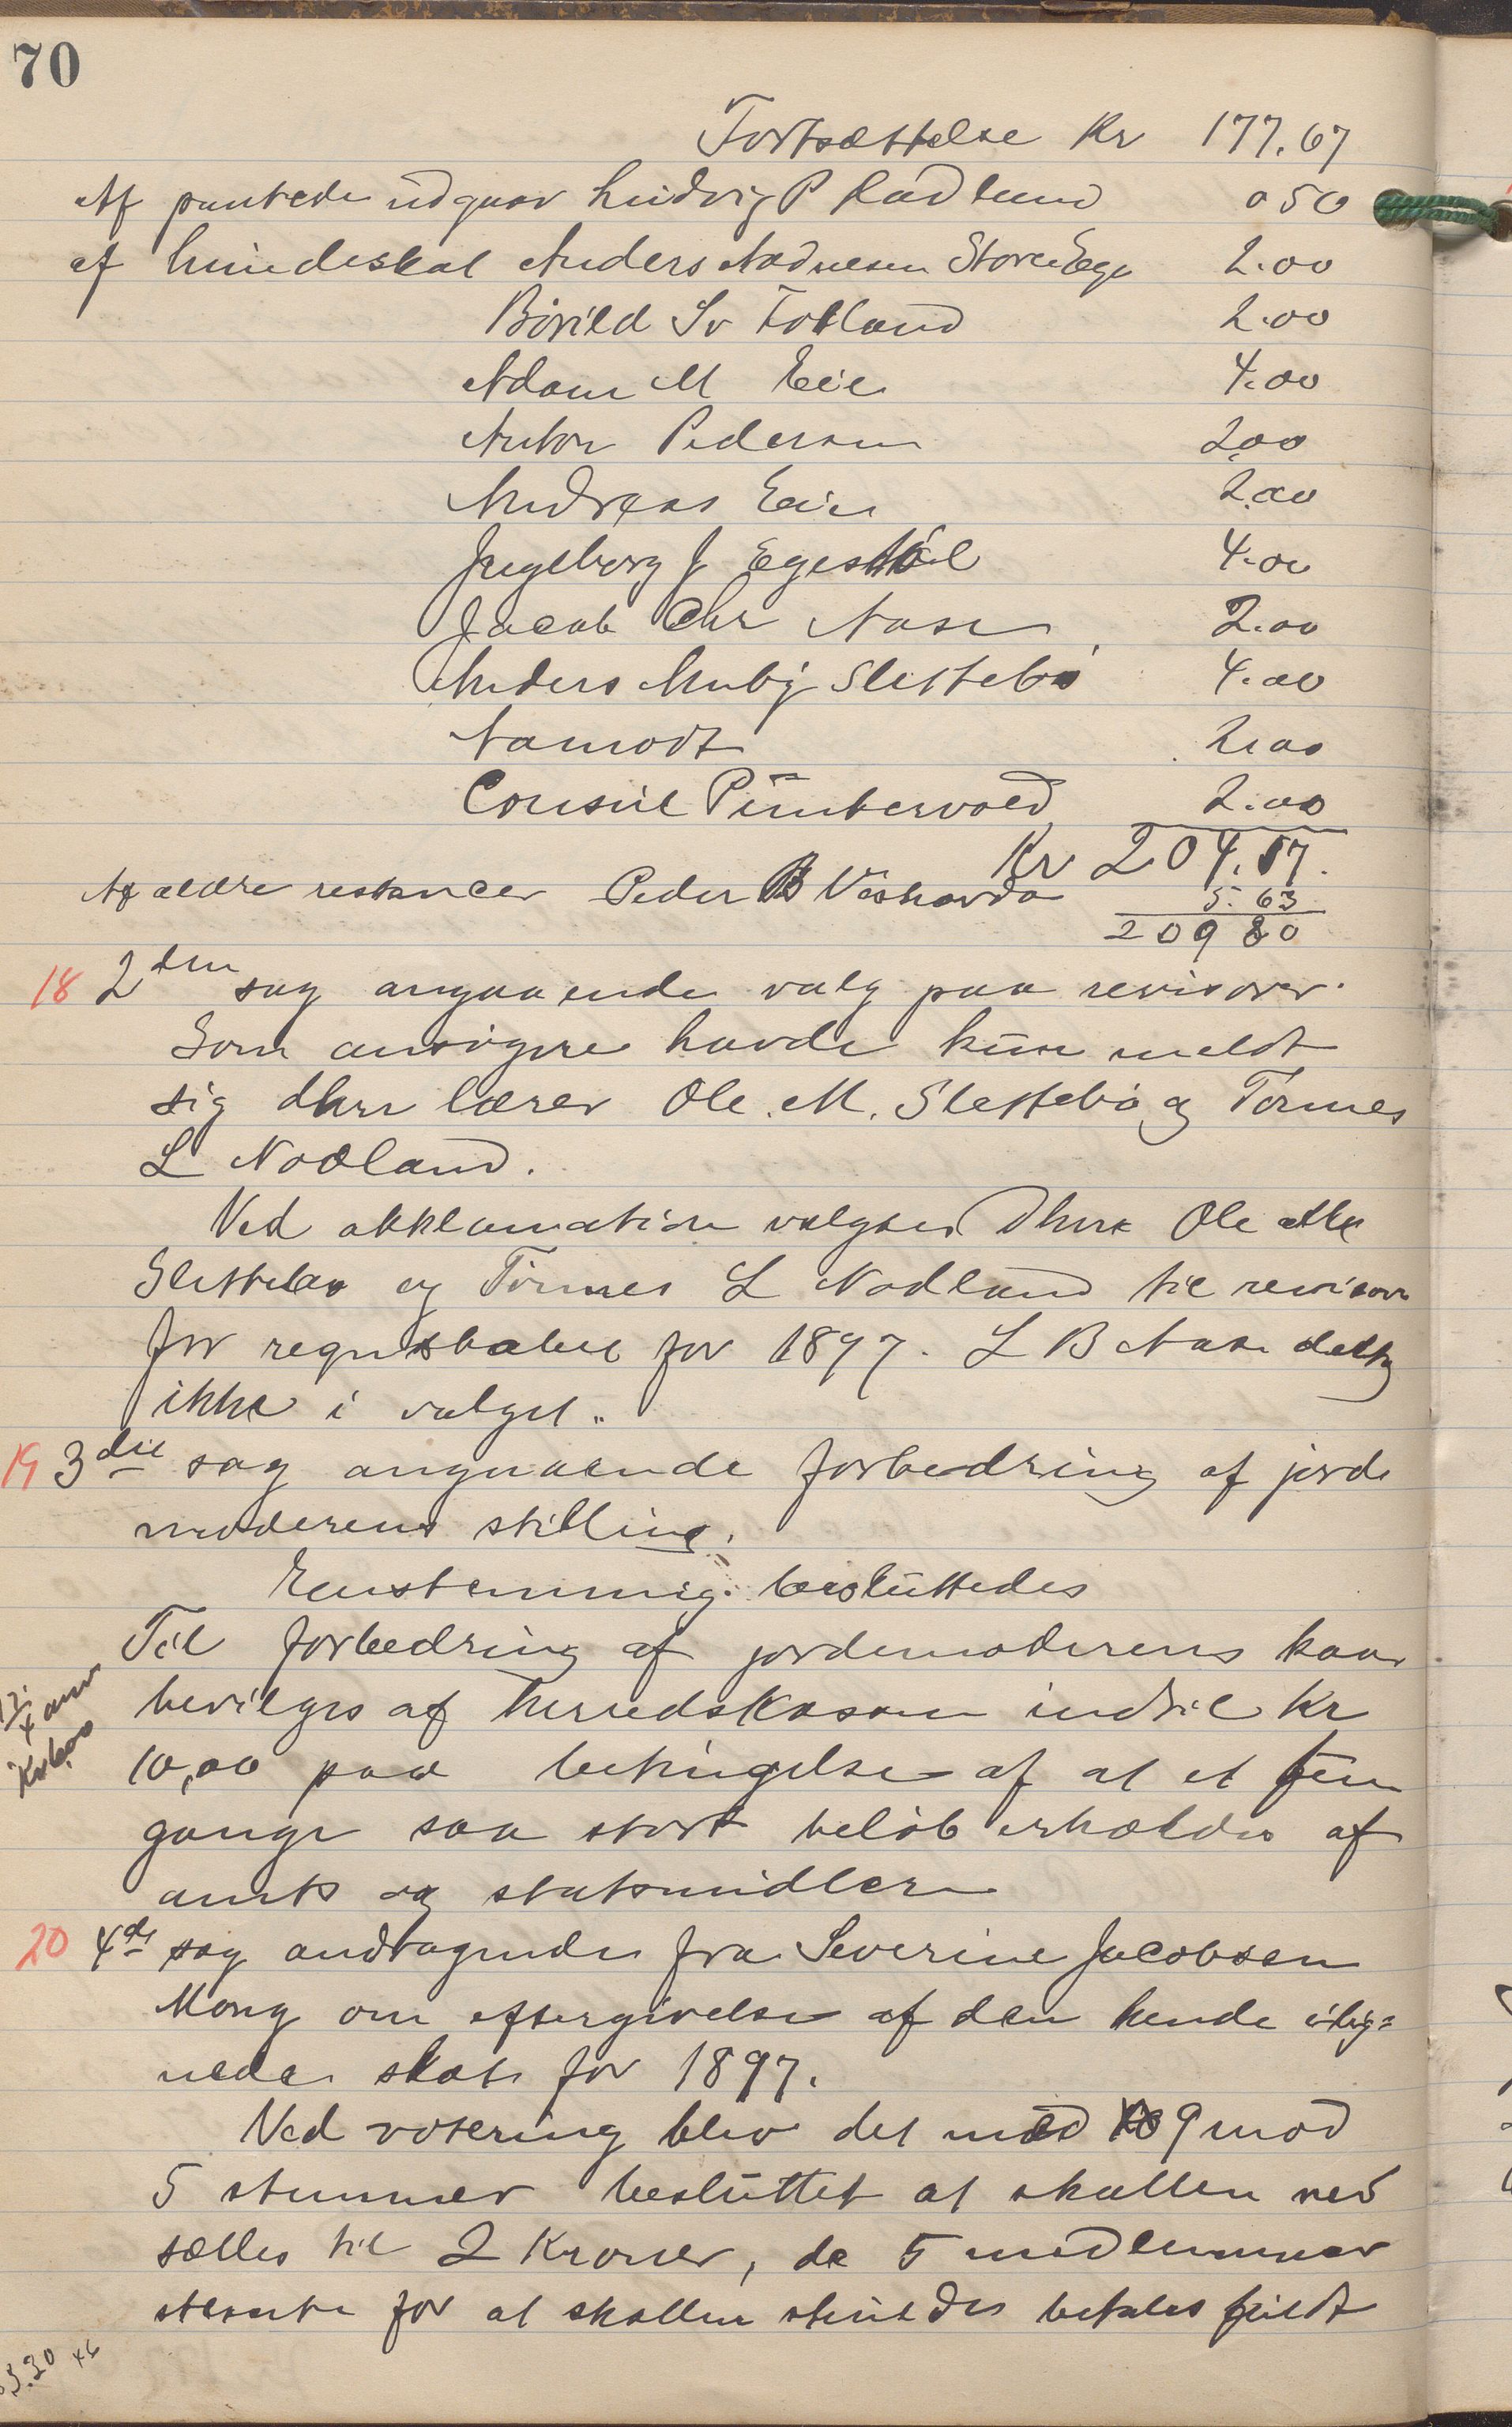 70
Fortsættelse Kr 177.67
Af pantede udgaar Ludvig P Radlund 0 50
af hundeskat Anders Aadnesen Store Ege 2.00
Bórild Sv Fotland 2.00
Adam M Eie 4.00
Anton Pedersen 2,00
Andreas Eie 2.00
Ingeborg J Egeståel 4.00
Jacob Chr Aase 2.00
Anders Slettebó 4.00
Aamodt 2.00
Consul Puntervold 2.00
Kr 204.17.
Af ældre restancer Peder B Våshovda 5.63
209 80
18 2den sag angaaende valg paa revisorer.
Som ansógere havde kun meldt
sig dhrr lærer Ole. M. Slettebó og Tormes
L Nodland.
Ved akklamation valgtes Dhrr Ole M
Slettebø og Tormes L Nodland til revisorer
for regnskabet for 1897. L B Aase deltog
ikke i valget.
19 3die sag angaaende forbedring af jorde
moderens stilling.
Enstemmig besluttedes
Til forbedring af jordemoderens kaar
bevilges af herredskassen indtil Kr
10,00 paa betingelse af at et fem
gange saa stort belób erholdes af
amts og statsmidler
20 4de sag andragende fra Severine Jacobsen
Mong om eftergivelse af den hende ilig=
nede skat for 1897.
Ved votering blev det med 9 mod
5 stemmer besluttet at skatten ned
sættes til 2 Kroner, de 5 medlemmer
stemte for at skatten skuldes betales fuldt